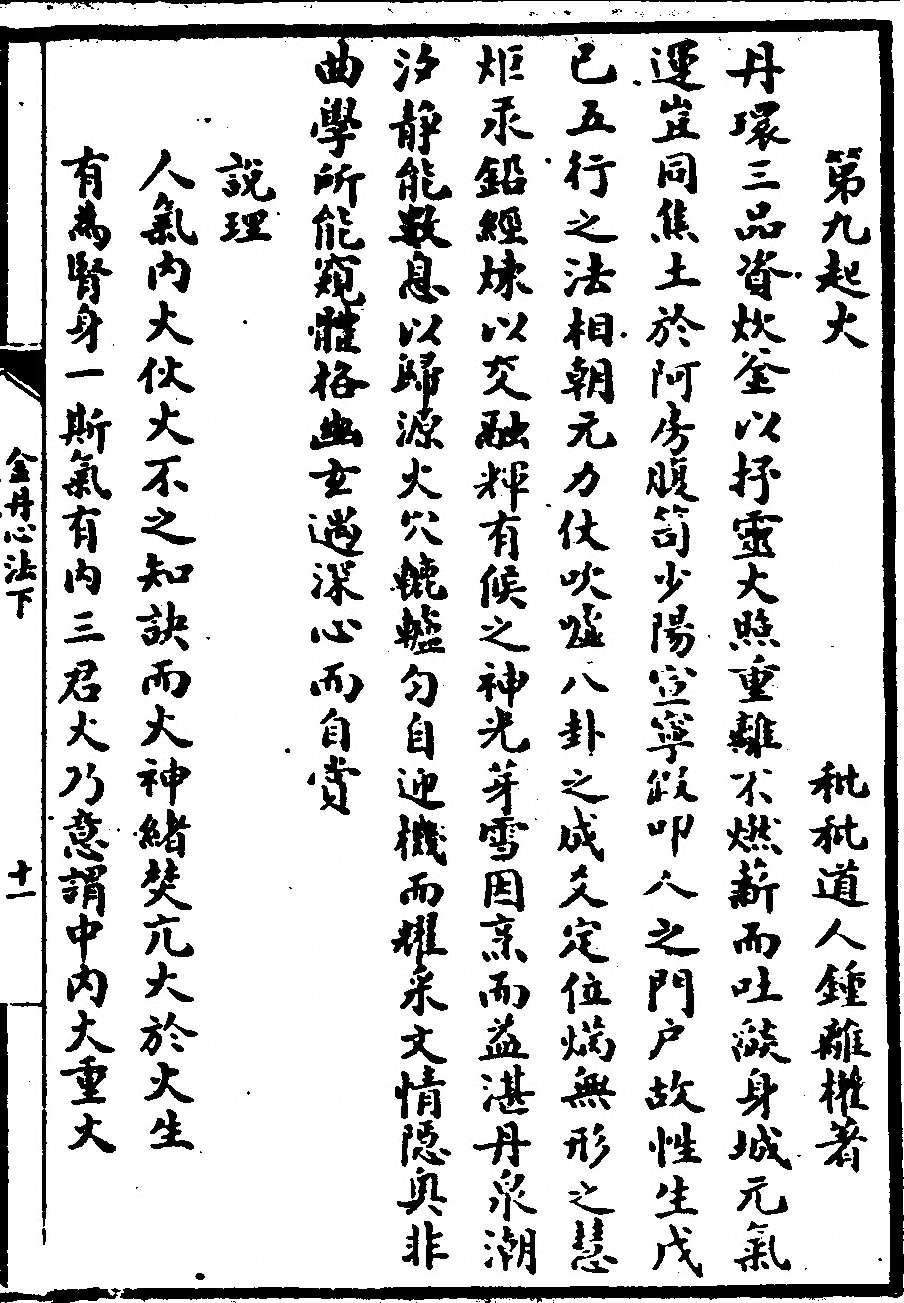 第九起火　　秕秕道人鍾離權著
丹環三品資炊釜以抒靈火照重離不燃薪而吐燄身城元氣
運豈同焦土於阿房腹笥少陽空寧叚叩人之門戶故性生戊
己五行之法相朝元力仗吹噓八卦之成爻定位爛無形之慧
炬汞鉛經煉以交融輝有候之神光芽雪因烹而益湛丹泉潮
汐靜能數息以歸源火穴轆轤匀自迎機而耀采文情隱奥非
曲學所能窺體格幽玄遇深心而自賞
說理
人氣內火伙火不之知訣而火神緒焚亢大於火生
有為腎身一斯氣有內三君火乃意謂中內大重火
金丹心法下
十一